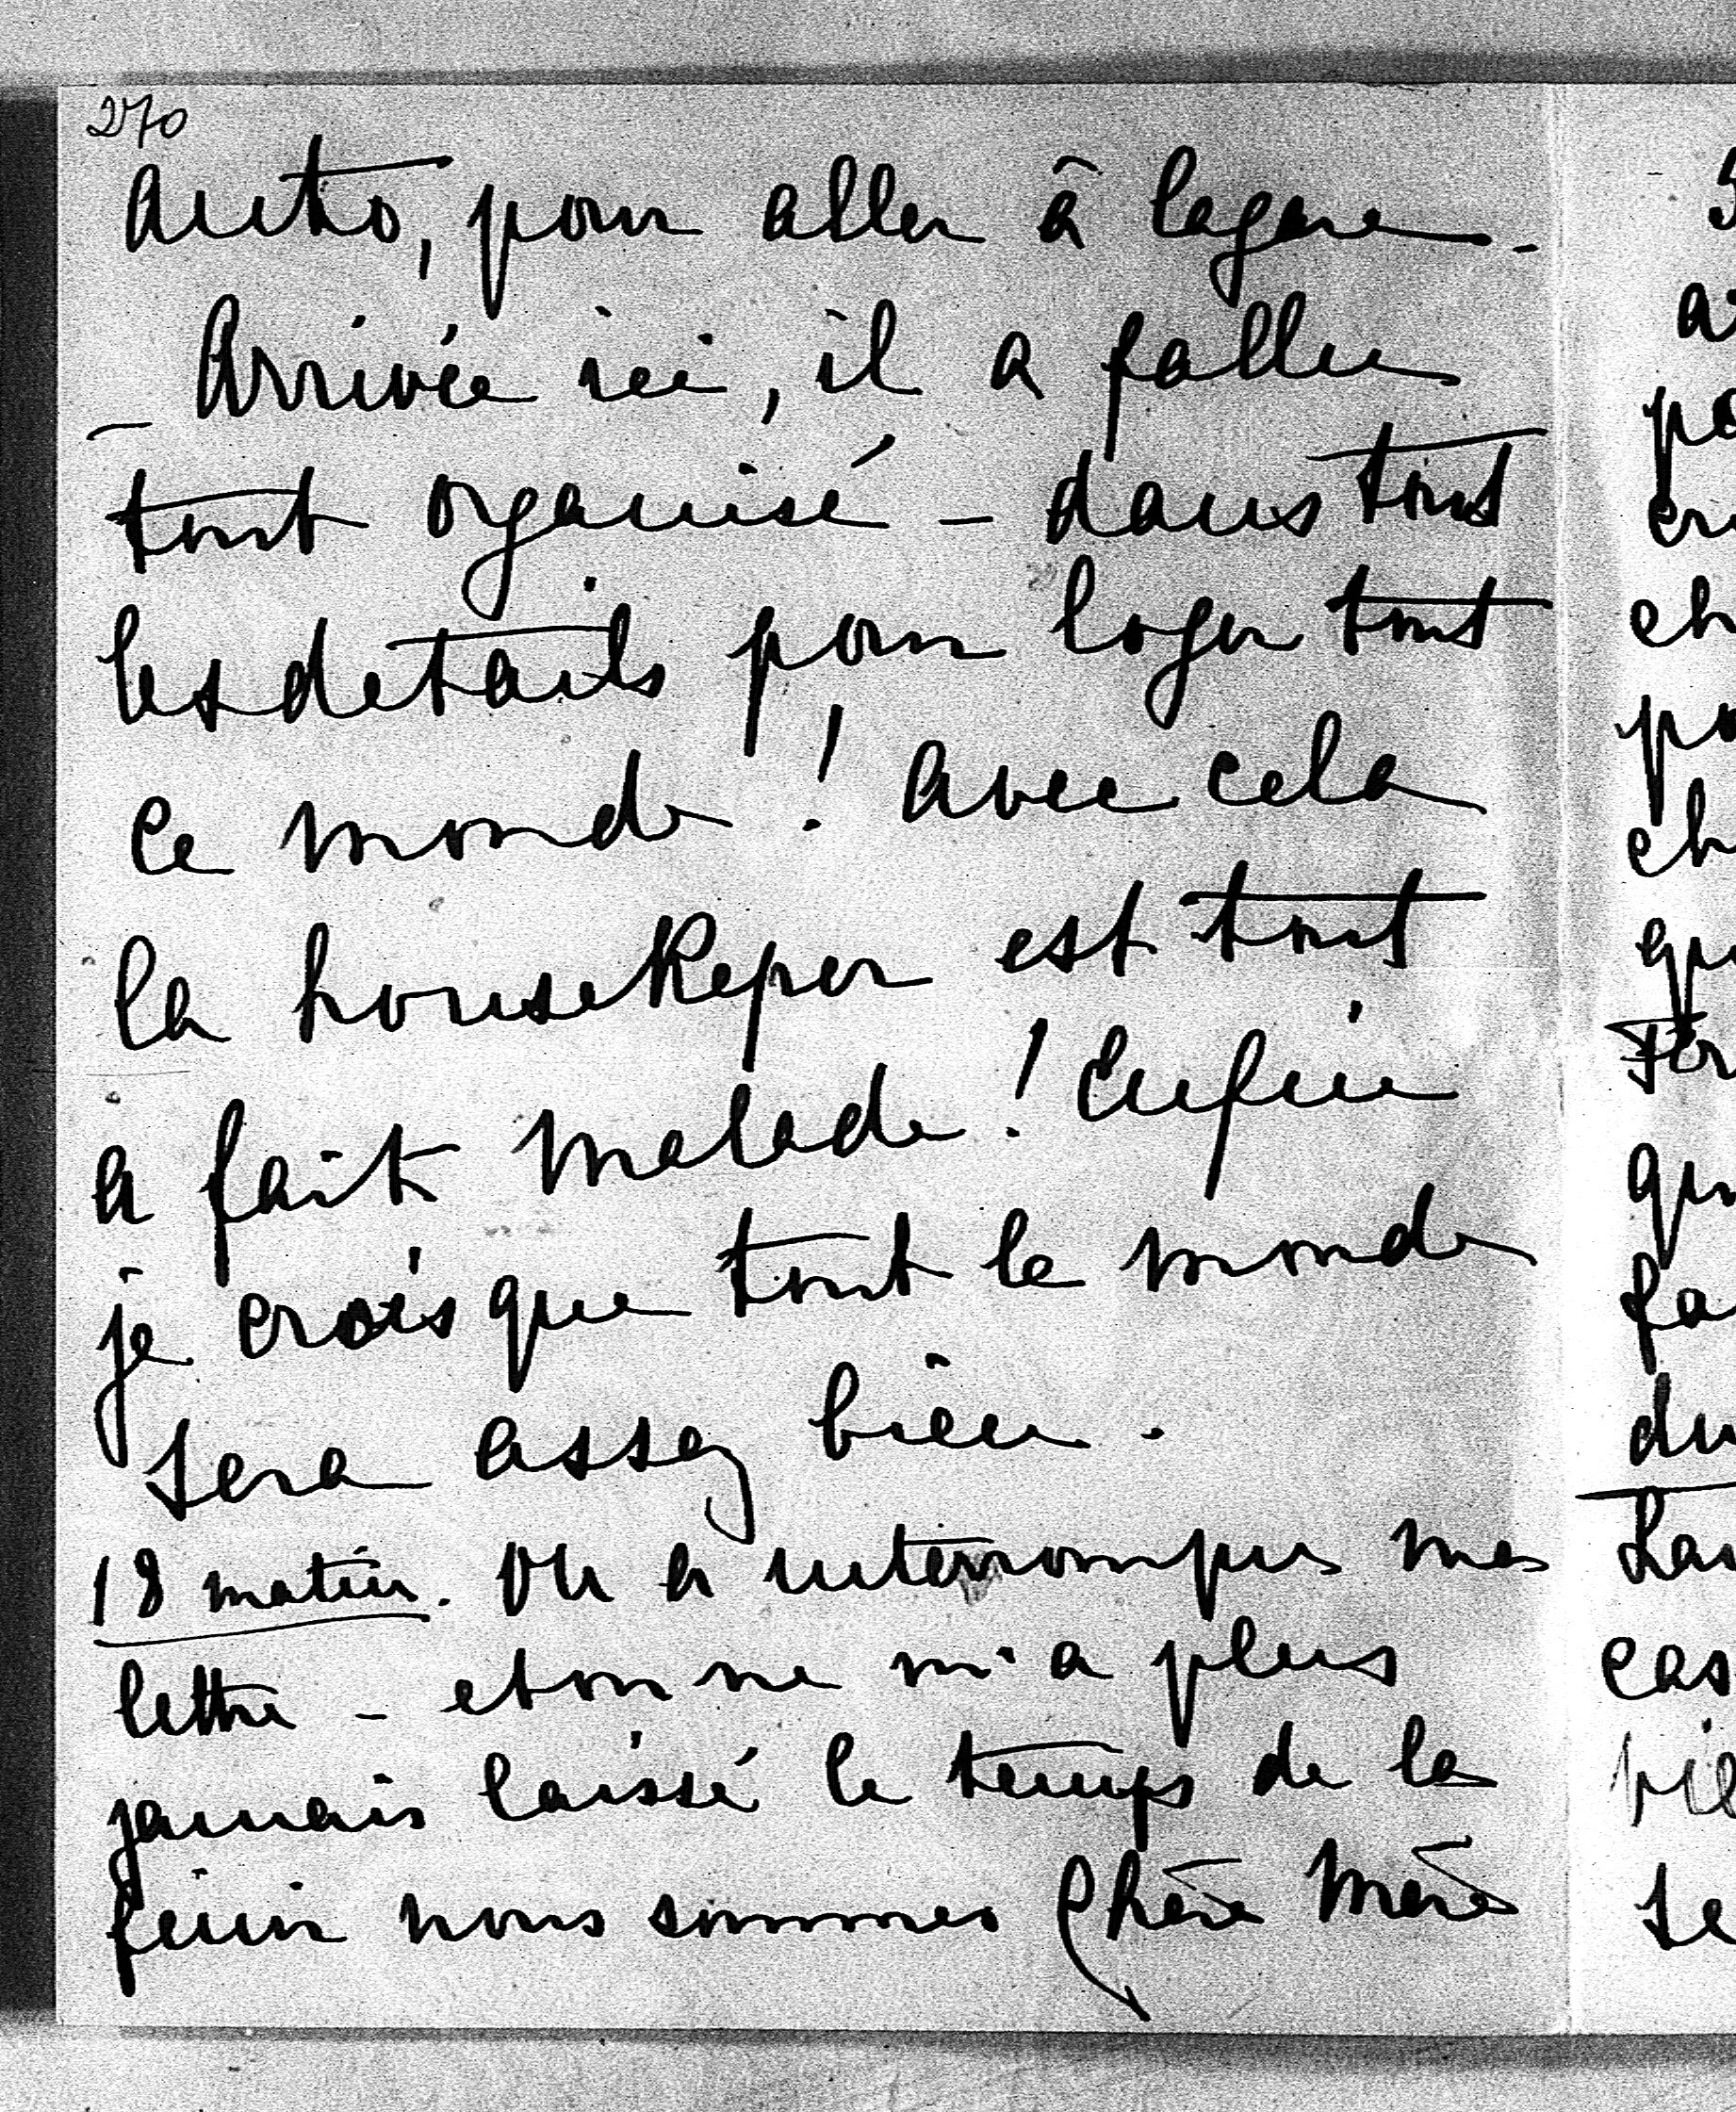 270
auto, pour aller à la gare -
_ Arrivée ici, il a fallu
tout organisé - dans tout
les details pour loger tout
ce monde ! avec cela
la houseKeper est tout
a fait malade ! Enfin
je crois que tout le monde
sera assez bien .
18 matin. On a interrompus ma
lettre - et on ne m'a plus
jamais laissé le temps de la
finir nous sommes Chère Mère